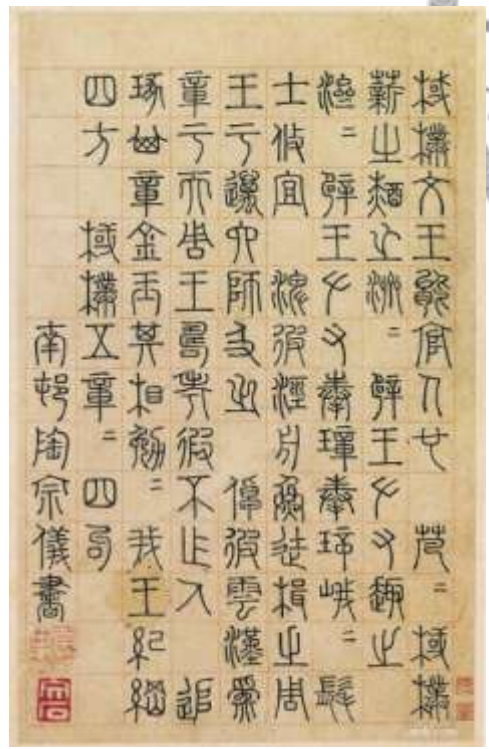 棫樸文王能官人也 芃〻棫樸
薪之槱之濟〻辟王左右趣之
濟〻辟王左右奉璋奉璋峨〻髦
士攸宜 淠彼涇舟烝徒楫之周
王于邁六師及之 倬彼雲漢爲
章于天周王壽考遐不作人 追
琢其章金玉其相勉〻我王紀綱
四方 棫樸五章〻四句
南邨陶宗儀書